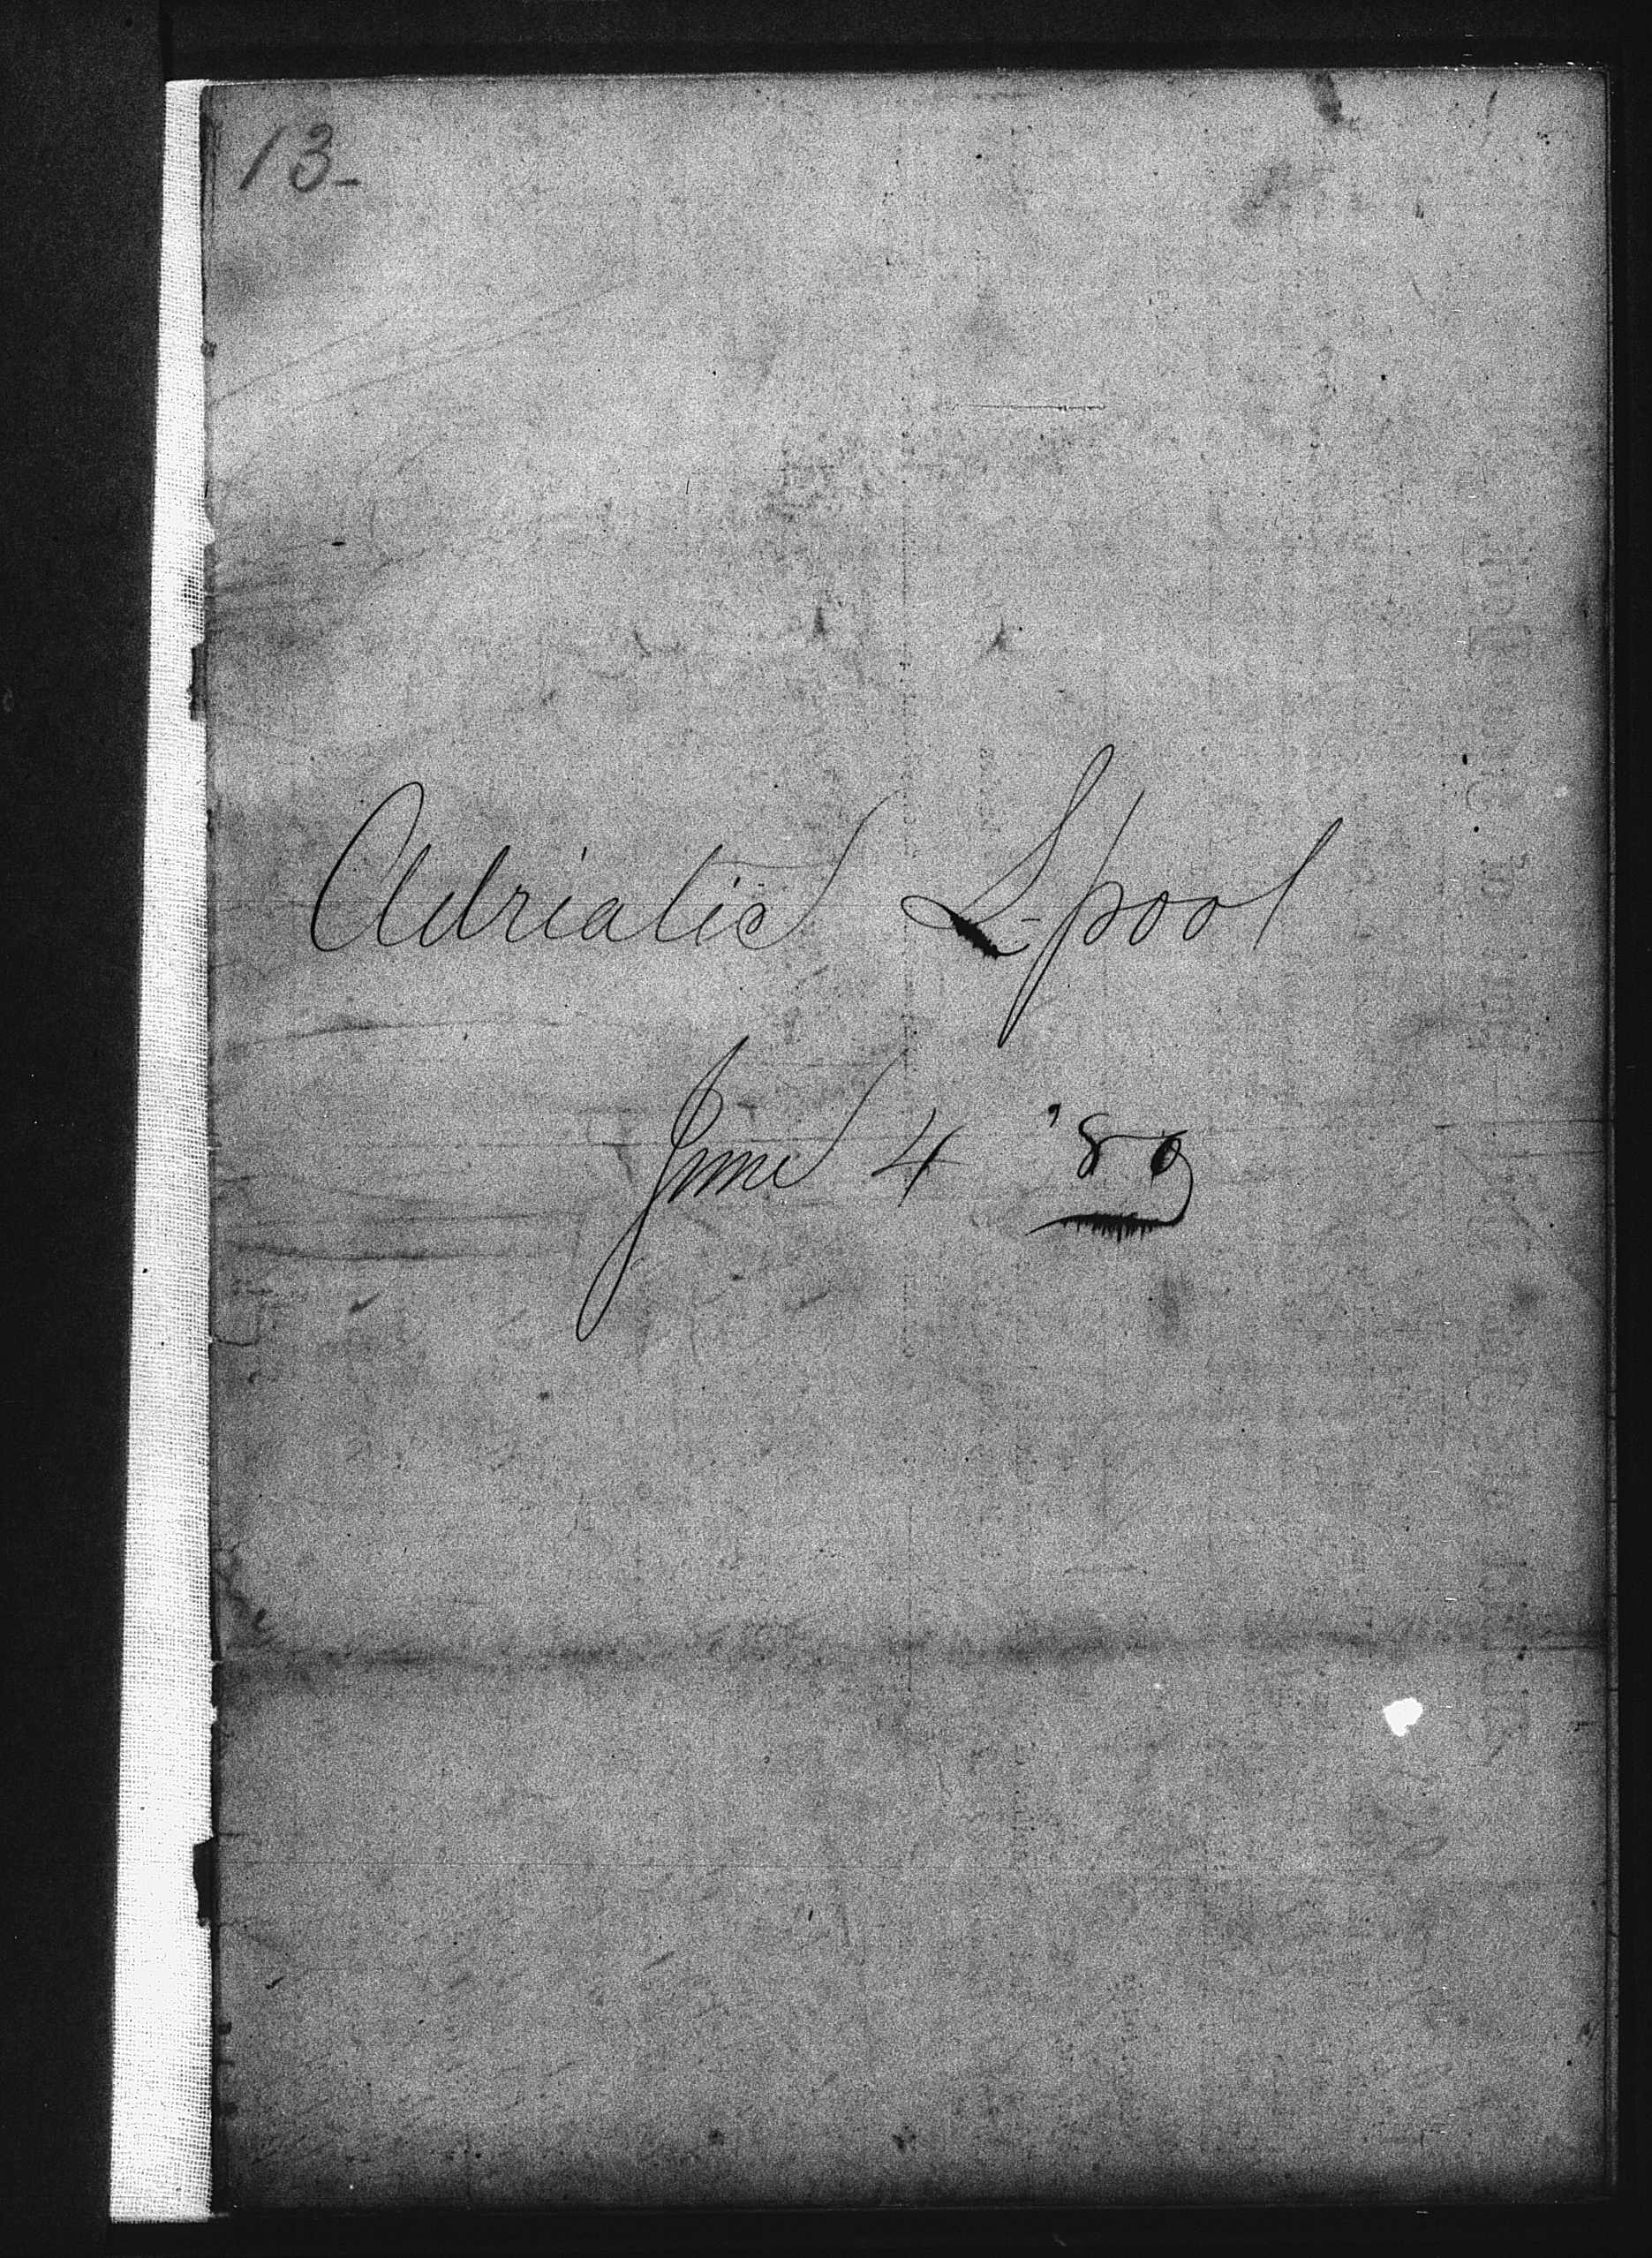 13-
Adriatic L-pool
June 4 '89